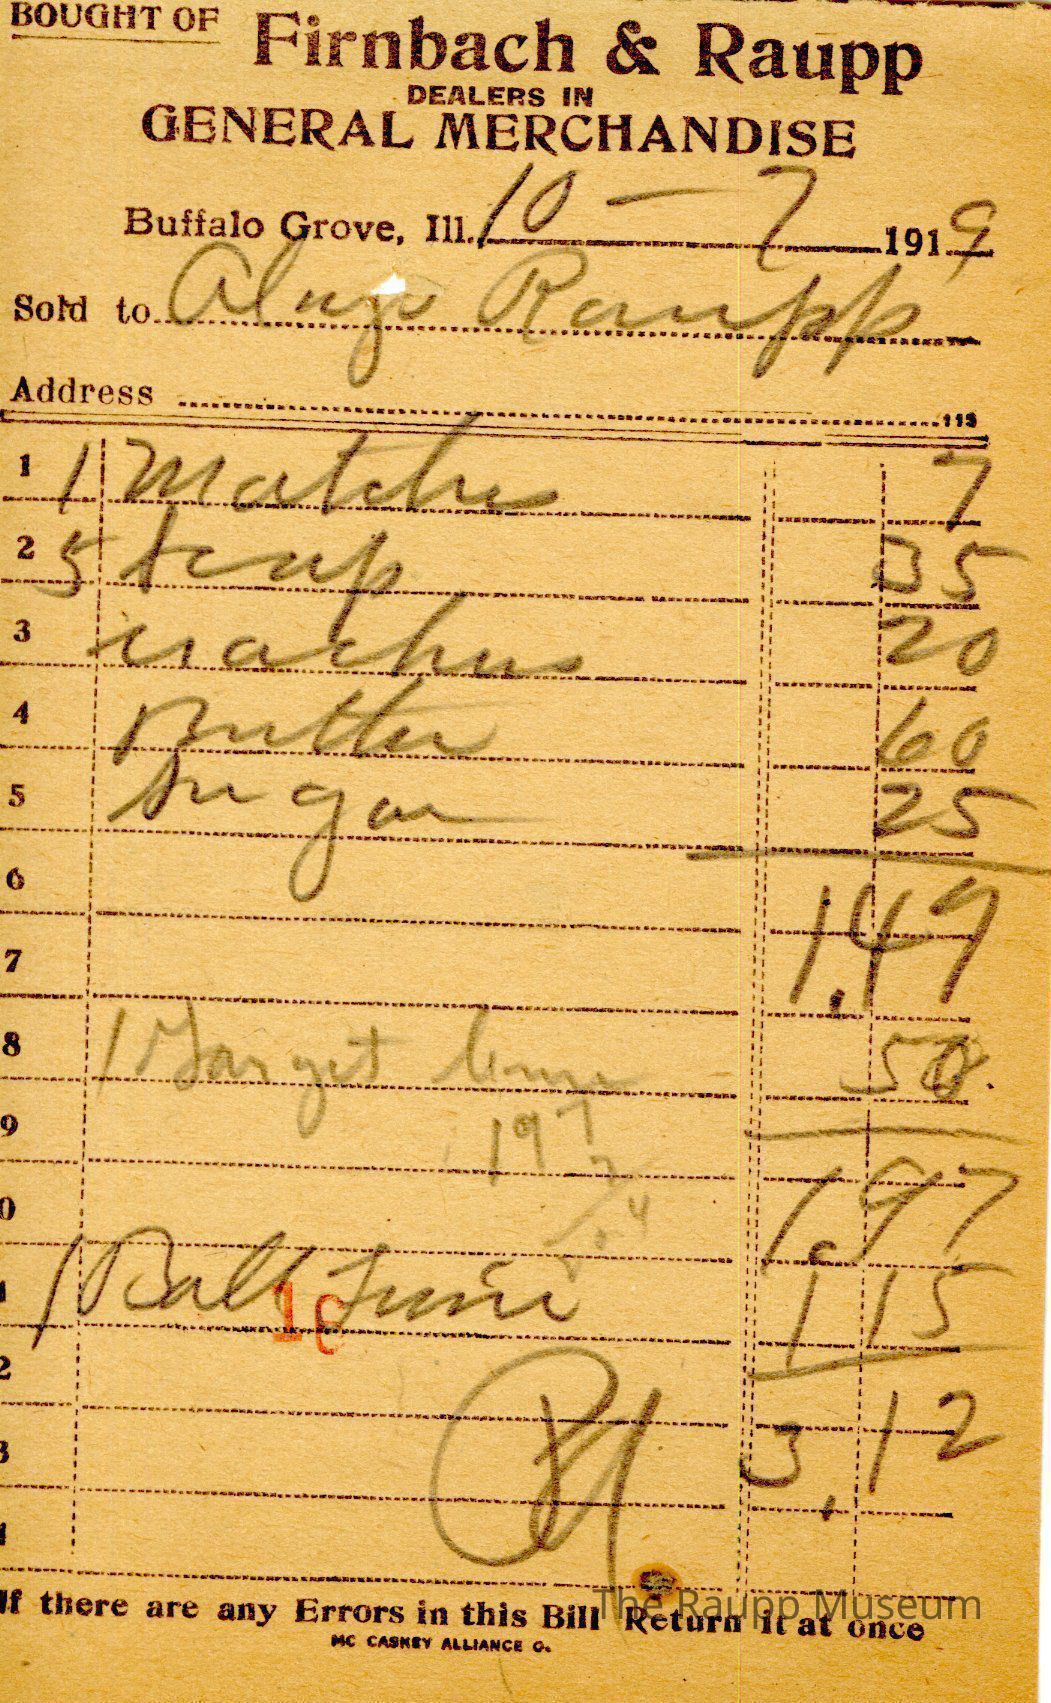 BOUGHT OF
Firnbach & Raupp
DEALERS IN
GENERAL MERCHANDISE
Buffalo Grove, Ill. 10 — 7 1919
Sold to Raupp
Address
113
1 1 Matches 7
2 5 Soap 35
3 20
4 Butter 60
5 Sugar 25
6
7 1.47
8 1 Target 50
9 197
0 1.97
1 Ball 1 15
16
2
3 3.12
If there are any Errors in this Bill Return it at once
MC CASKEY ALLIANCE O.
The Raupp Museum